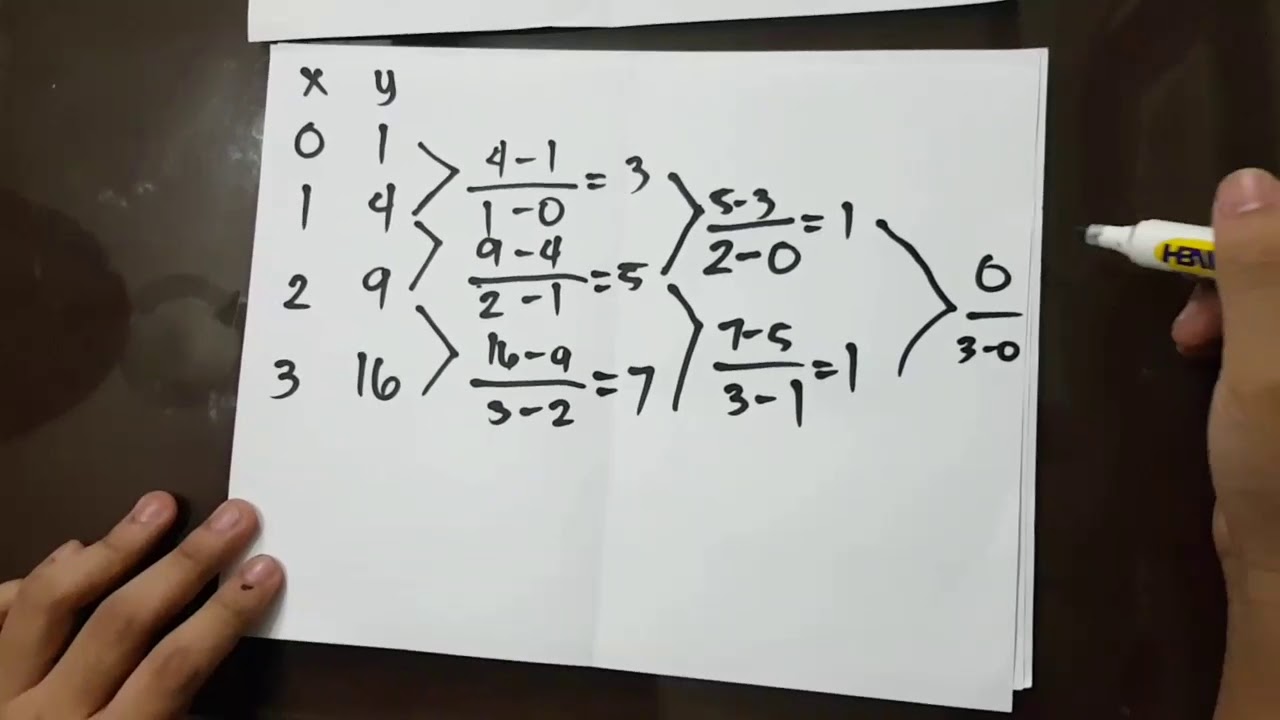 x y
0 1
1 4
2 9
3 16
4-1
1-0
= 3
9-4
2-1
=5
16-9
3-2
=7
5-3
2-0
=1
7-5
3-1
=1
0
3-0
HBW